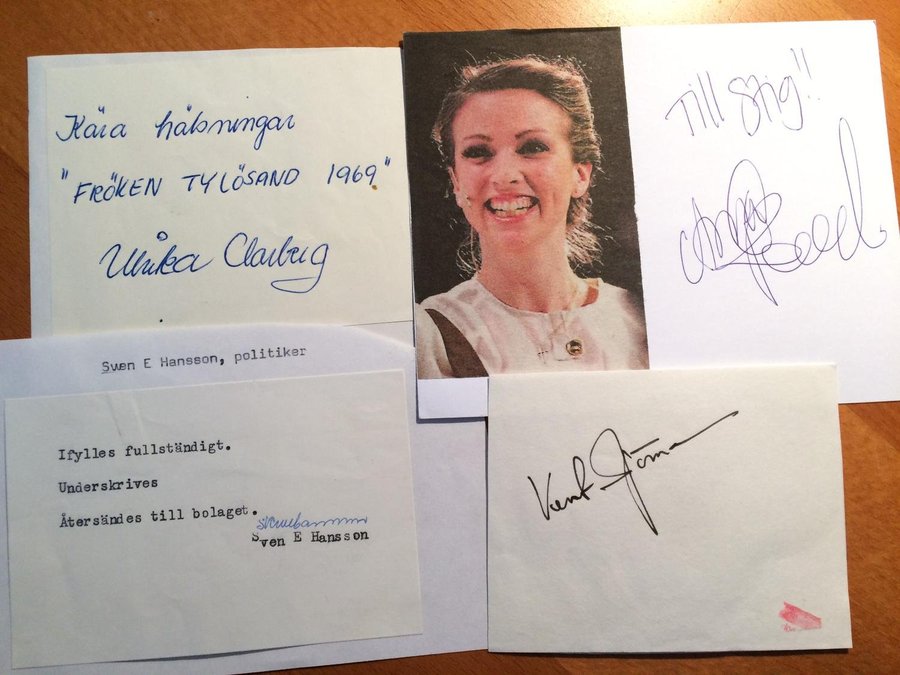 Kära hälsningar
"FRÖKEN TYLÖSAND 1969"
Ulrika
Till Stig!!
Sven E Hansson, politiker
Ifylles fullständigt.
Underskrives
Återsändes till bolaget.
Sven E Hansson